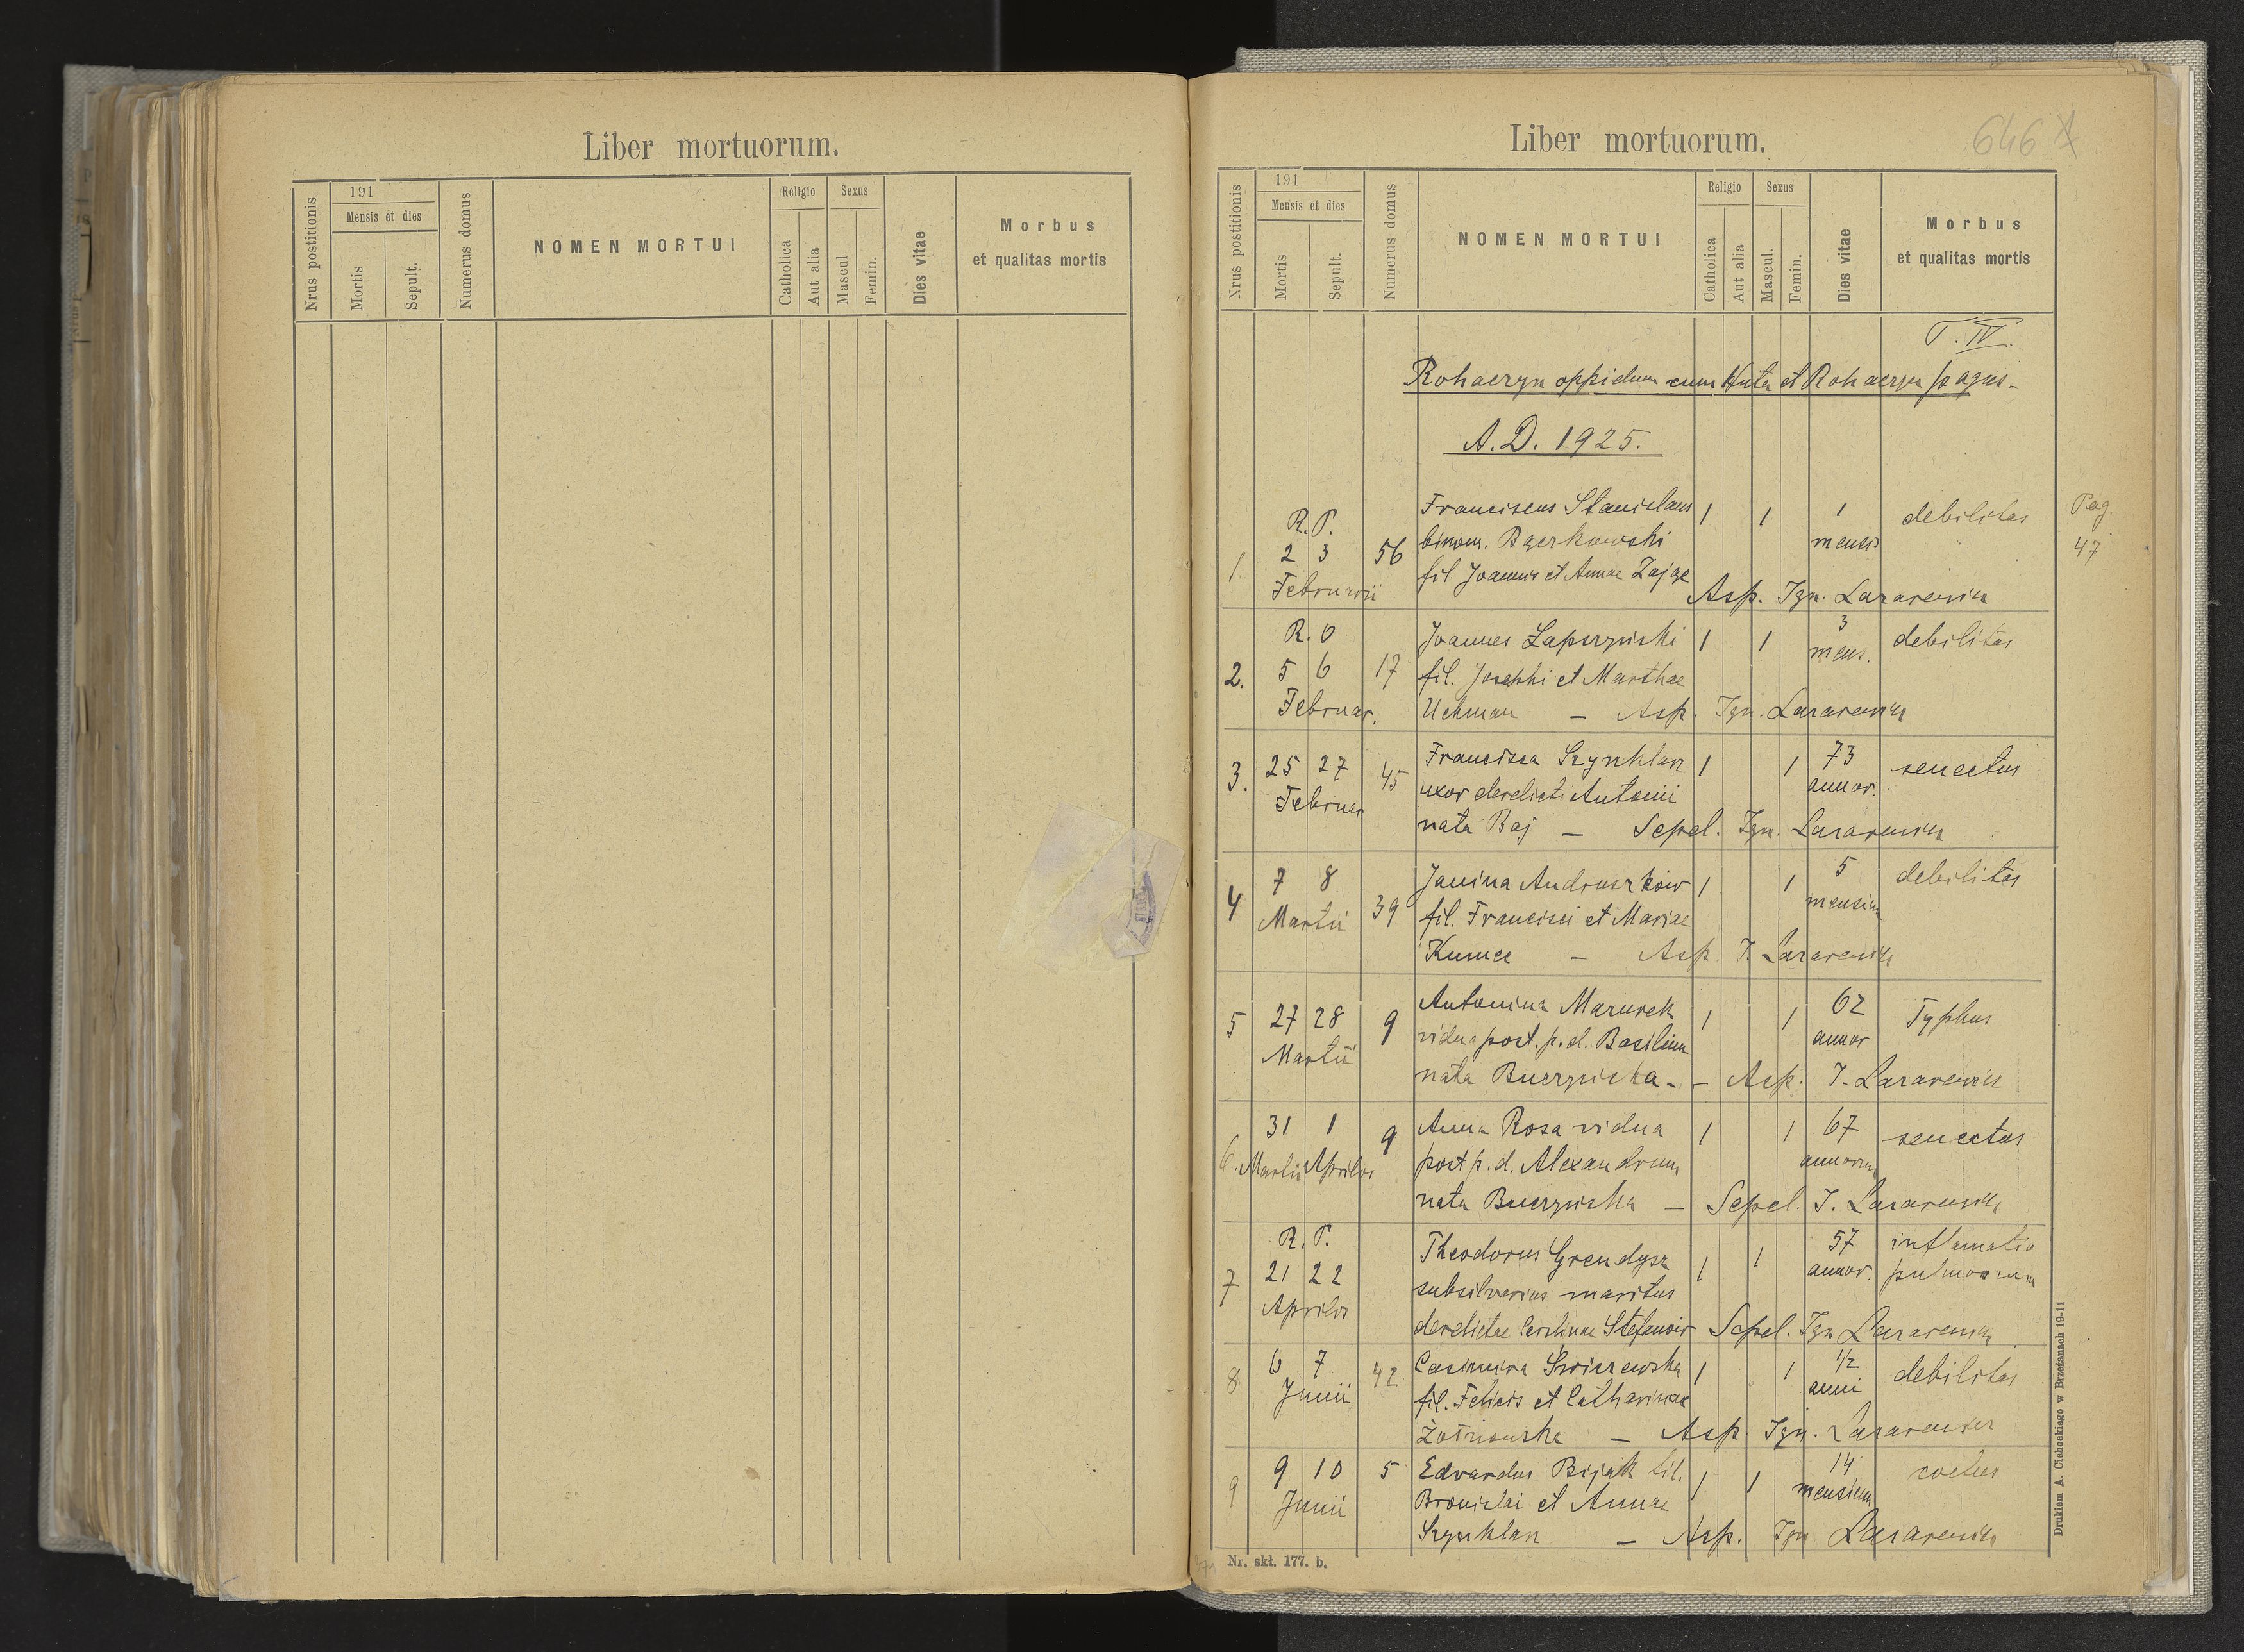 Liber mortuorum.
Nrus postitionis
191
Mensis et dies
Mortis
Sepult.
Numerus domus
NOMEN MORTUI
Religio
Catholica
Aut alia
Sexus
Mascul.
Femin.
Dies vitae
Morbus
et qualitas mortis
Liber mortuorum.
646
Nrus postitionis
191
Mensis et dies
Mortis
Sepult.
Numerus domus
NOMEN MORTUI
Religio
Catholica
Aut alia
Sexus
Mascul.
Femin.
Dies vitae
Morbus
et qualitas mortis
T. IV.
Rohaczyn oppidum cum Huta et Rohaczyn pagus-
A.D. 1925.
R.P. Franciscus Stanislaus 1 1 1 debilitas Pag.
1 2 3 56 binom. Bączkowski mensis 47
Februarii fil. Joannis et Annae Zając
Asp. Ign. Lazarewicz
R.O Joannes Lapczyński 1 1 3 debilitas
2. 5 6 17 fil. Josephi et Marthae mens.
Februar. Uchman - Asp. Ign. Lazarewicz
3. 25 27 45 Francisca Szynklarz 1 1 73 senectus
Februar uxor derelicti Antonii annor.
nata Baj - Sepel. Ign. Lazarewicz
4 7 8 39 Janina Andruszków 1 1 5 debilitas
Martii fil. Francisci et Mariae mensium
- Asp. I. Lazarewicz
5 27 28 9 Antonina Mazurek 1 1 62 Typhus
Martii vidua post. p.d. Basilium annor
nata Buczyńska - - Asp. I. Lazarewicz
6. 31 1 9 Anna Rosa vidua 1 1 67 senectus
Martii Aprilis post p.d. Alexandrum annorum
nata Buczyńska - Sepel. I. Lazarewicz
R.P. Theodorus Grendysz 1 1 57 inflamatio
7 21 22 subsilvarius maritus annor. pulmonum
Aprilis derelictae Carolinae Stefanów Sepel. Ign Lazarewicz
8 6 7 42 Casimira Świszewska 1 1 1/2 debilitas
Junii fil. Felicis et Catharinae anni
- Asp. Ign. Lazarewicz
9 9 10 5 Edvardus Bijak fil. 1 1 14
Junii Bronislai et Annae mensium
Szynklarz - Asp. Ign Lazarewicz
Nr. skł. 177. b.
Drukiem A. Cichockiego w Brzeżanach 19-11